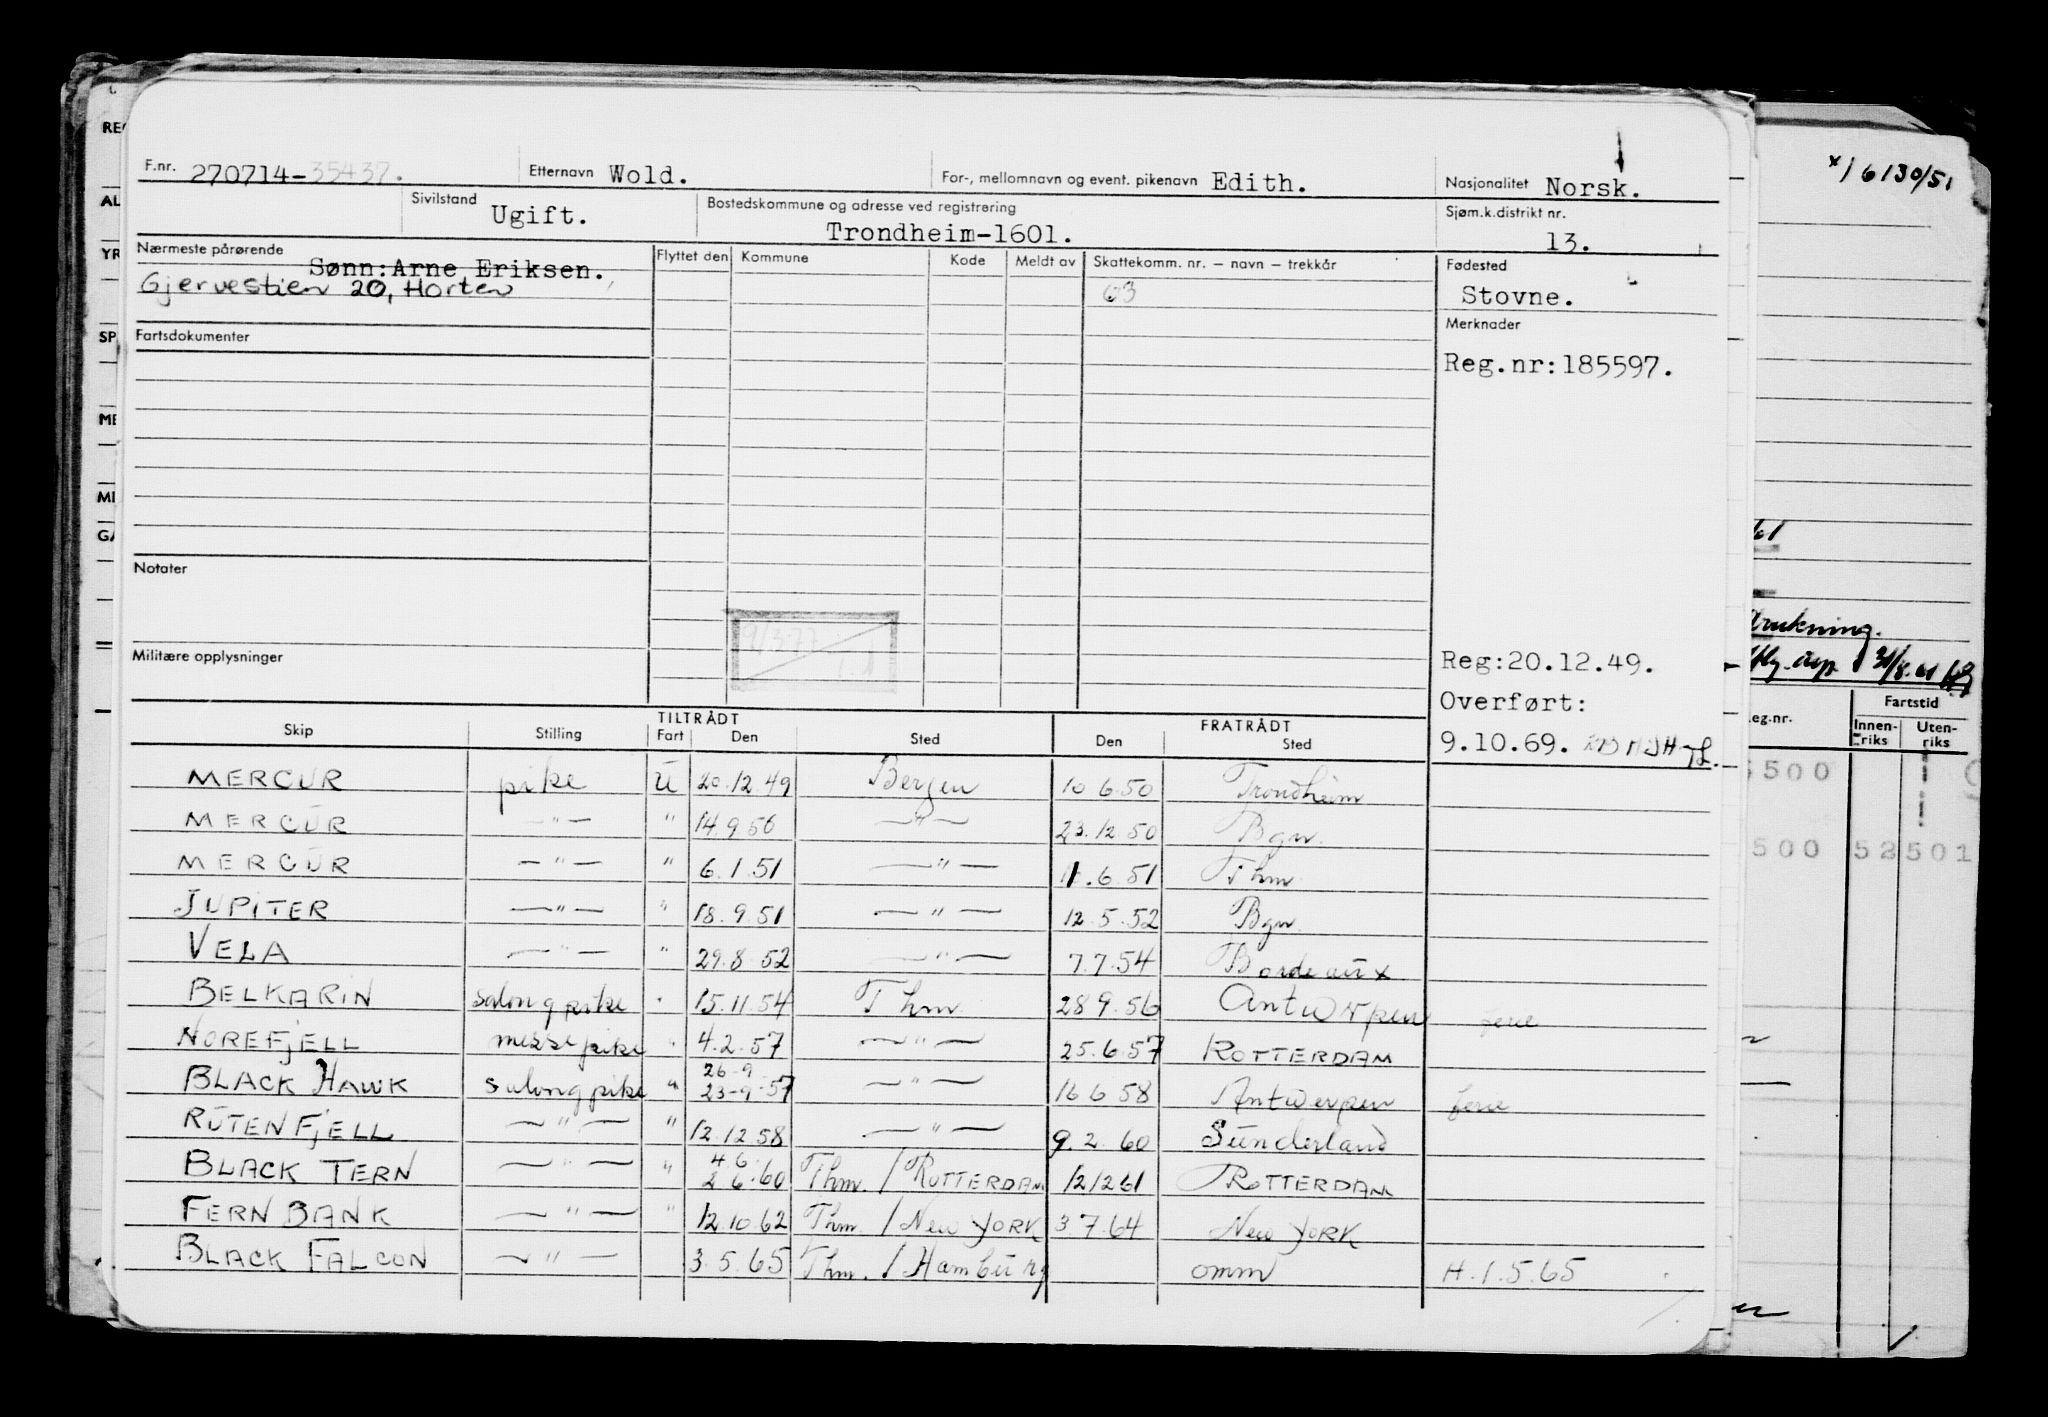 F.nr. 270714-35437. Etternavn Wold. For-, mellomnavn og event. pikenavn Edith. Nasjonalitet Norsk.
Sivilstand Ugift. Bostedskommune og adresse ved registrering Trondheim-1601. Sjøm.k.distrikt nr. 13.
Nærmeste pårørende Sønn:Arne Eriksen. Flyttet den Kommune Kode Meldt av Skattekomm. nr. – navn – trekkår Fødested
Gjervestien 20, Horten 63 Stovne.
Fartsdokumenter Merknader
Reg.nr:185597.
Notater
9/3-77
Militære opplysninger Reg:20.12.49.
Overført:
9.10.69.
TILTRÅDT FRATRÅDT
Skip Stilling Fart Den Sted Den Sted
MERCUR pike U 20.12.49 Bergen 10 6.50 Trondheim
MERCUR —"— " 14.9 50 —"— 23.12 50 Bgn.
MERCUR —"— " 6.1.51 —"— 11.6.51 Thm.
JUPITER —"— " 18.9.51 —"— 12.5.52 Bgn.
VELA —"— " 29.8 52 —"— 7.7.54 Bordeaux
BELKARIN salongpike " 15.11.54 Thm. 28 9.56 Antwerpen ferie
NOREFJELL messepike " 4.2.57 —"— 25.6.57 ROTTERDAM
BLACK HAWK salongpike " 26-9 23-9-57 —"— 16 6 58 Antwerpen ferie
RUTENFJELL —"— " 12.12.58 —"— 9.2.60 Sunderland
BLACK TERN —"— " 4 6 2 6.60 Thm. / ROTTERDAM 12/12 61 ROTTERDAM
FERN BANK —"— " 12.10.62 Thm. / New YORK 3 7.64 New YORK
BLACK FALCON —"— 3.5.65 Thm. / Hamburg omm H.1.5.65
REG
AL
YR
SP
ME
MI
GA
x) 6130/51
61
drukning.
31/8.61
eg.nr. Fartstid
Innen-riks Uten-riks
500
500 52 501